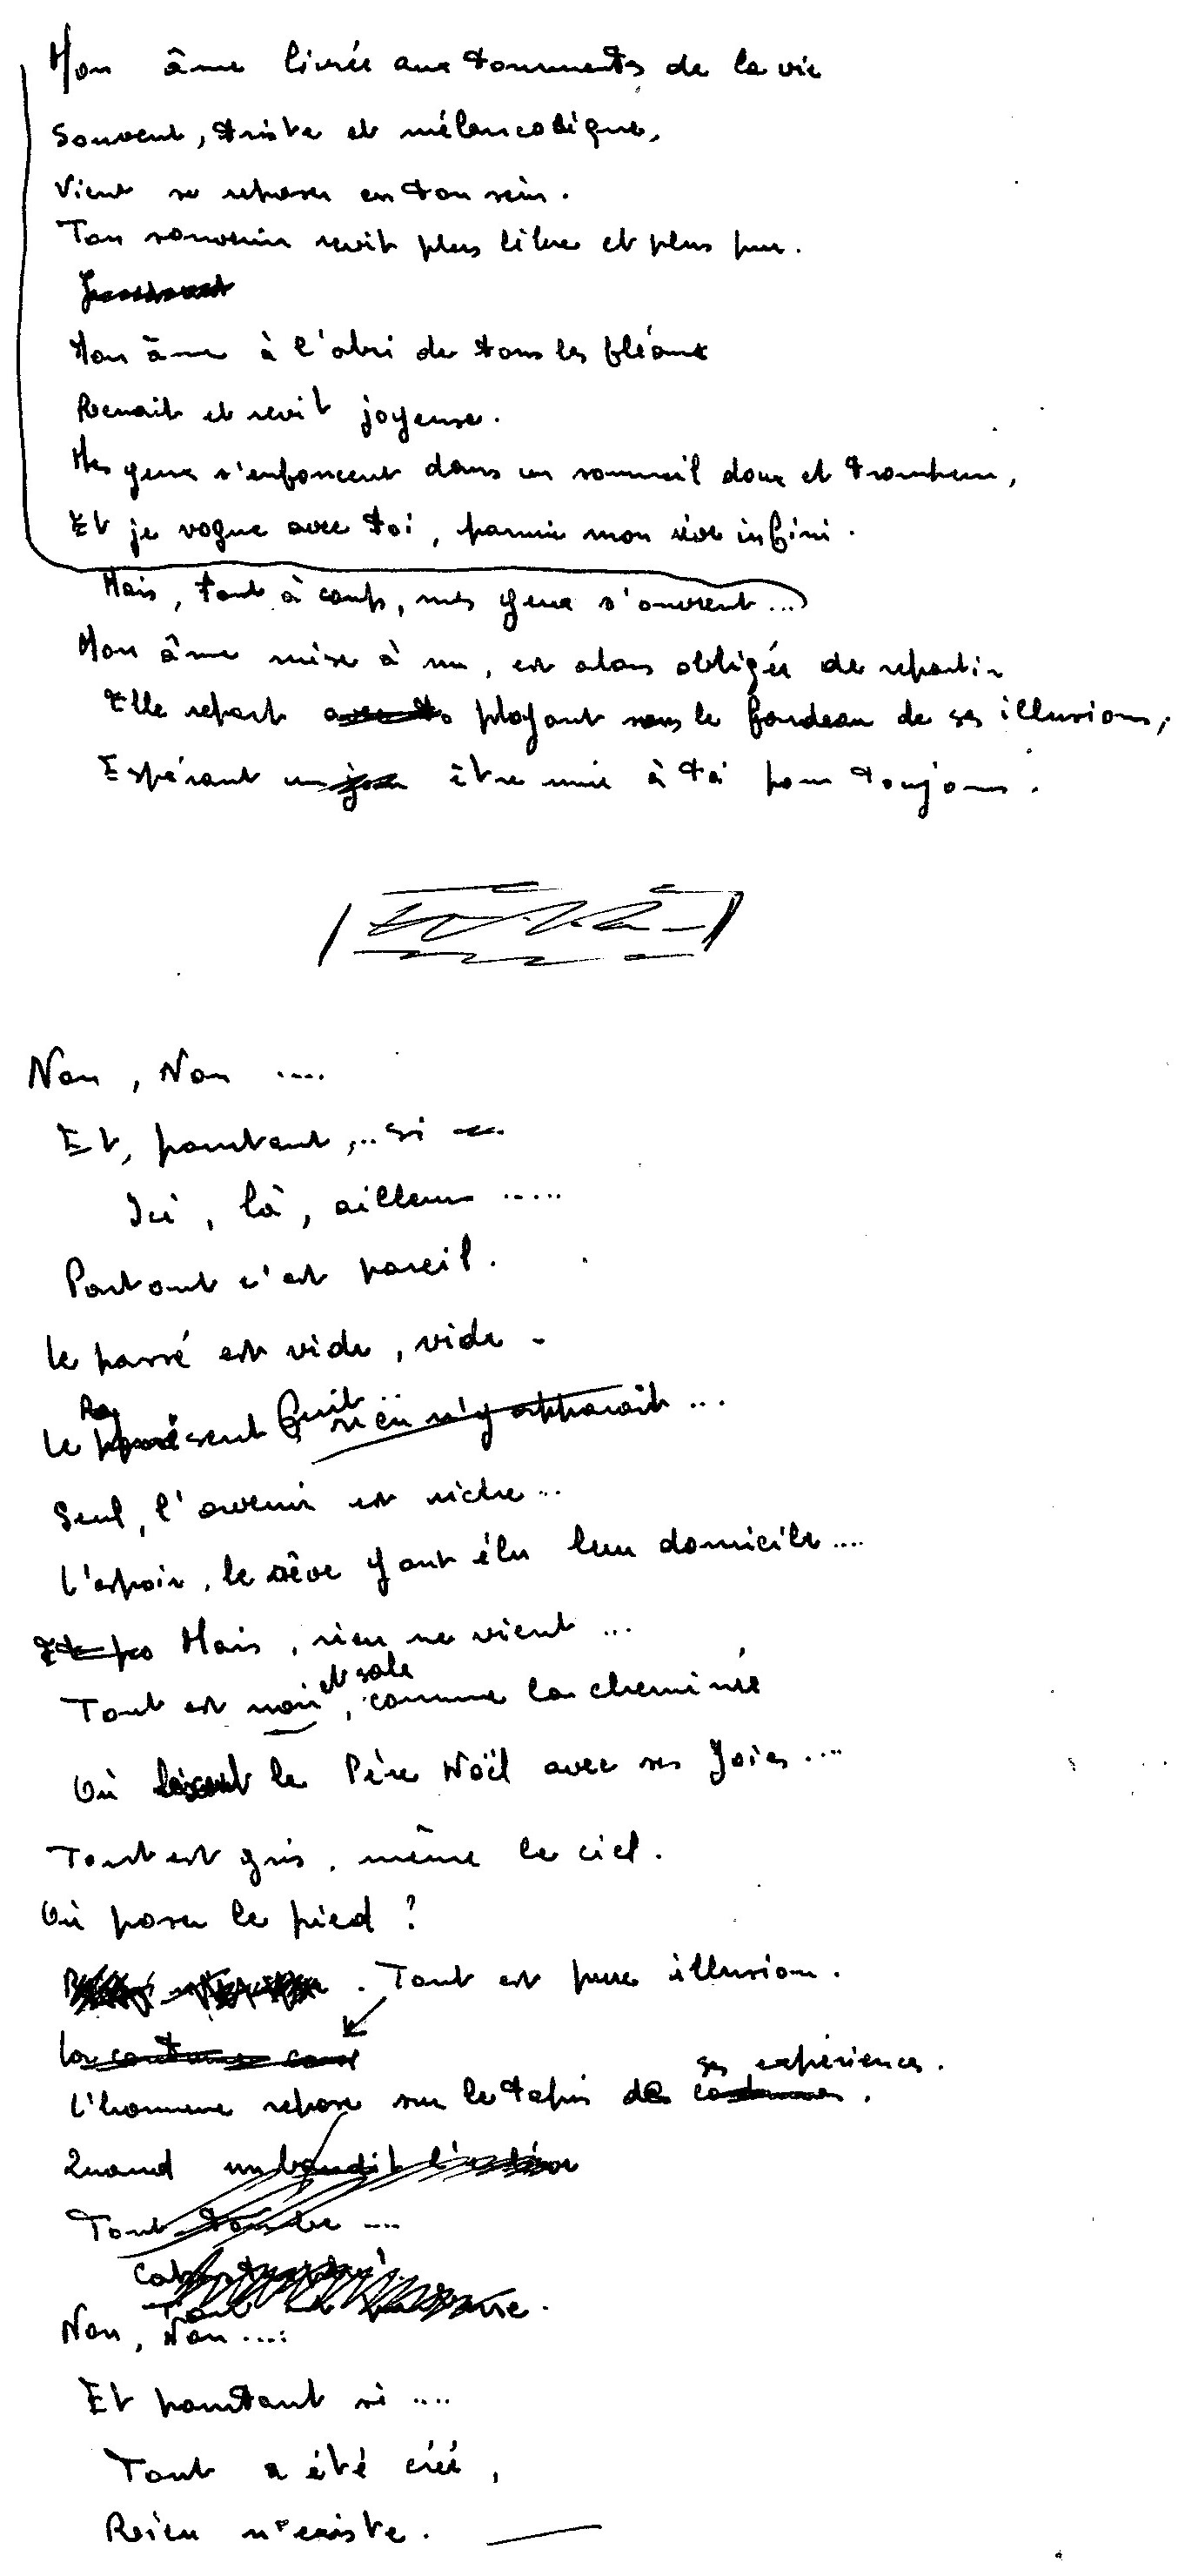 Mon âme livrée aux tourments de la vie
Souvent, triste et mélancolique,
Vient se reposer en ton sein.
Ton souvenir revit plus libre et plus pur.
Mon âme à l'abri de tous les fléaux
Renait et revit joyeuse.
Mes yeux s'enfoncent dans un sommeil doux et trompeur,
Et je vogue avec toi, parmie mon rêve infini.
Mais, tout à coup, mes yeux s'ouvrent...
Mon âme mise à nu, est alors obligée de repartir
Elle repart ployant sous le fardeau de ses illusions,
Espérant un jour être unie à toi pour toujours.
Non, Non ....
Et, pourtant,.. si
Ici, là, ailleurs .....
Partout c'est pareil.
Le passé est vide, vide -
Le présent fuit .. rien n'y apparait ...
Seul, l'avenir est riche...
L'espoir, le rêve y ont élu leur domicile ....
Mais, rien ne vient ...
Tout est noir et sale, comme la cheminée
Où le Père Noël avec ses Joies ....
Tout est gris, même le ciel.
Où poser le pied ?
. Tout est pure illusion.
La coutume
L'homme repose sur le tapis de ses expériences.
Quand un bandit l'
Tout tombe ....
Non, Non ....
Et pourtant si ....
Tout a été créé,
Rien n'existe.